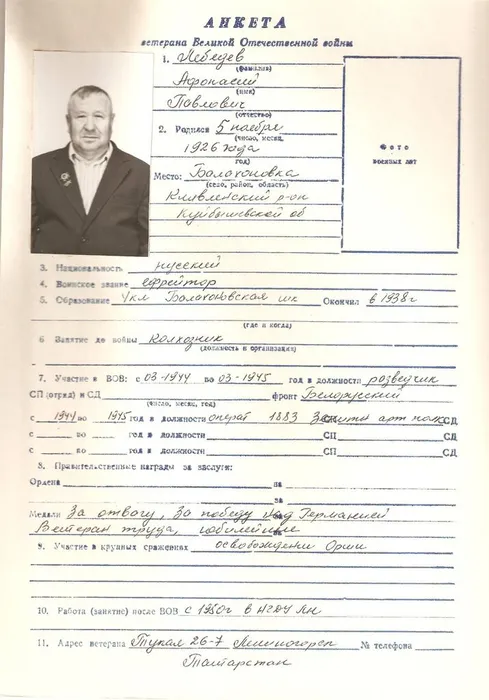 АНКЕТА
ветерана Великой Отечественной войны
1. Лебедев
(фамилия)
Афонасий
(имя)
Павлович
(отчество)
2. Родился 5 ноября
(число, месяц,
1926 года
год)
Место: Балахоновка
(село, район, область)
Кливленский р-он
Куйбышевской об
Фото
военных лет
3. Национальность русский
4. Воинское звание ефрейтор
5. Образование 4 кл Балахоновская шк Окончил в 1938 г
(где и когда)
6 Занятие до войны Колхозник
(должность и организация)
7. Участие в ВОВ: с 03-1944 по 03-1945 год в должности разведчик
СП (отряд) и СД фронт Белорусский
(число, месяц, год)
с 1944 по 1945 год в должности операт 1883 Зенитн арт полк СД
с по год в должности СП СД
с по год в должности СП СД
8. Правительственные награды за заслуги:
Ордена на
за
Медали За отвагу, За победу над Германией
Ветеран труда, юбилейные
9. Участие в крупных сражениях освобождении Орши
10. Работа (занятие) после ВОВ с 1950 г в НГДУ
11. Адрес ветерана Тукая 26-7 Лениногорск № телефона
Татарстан